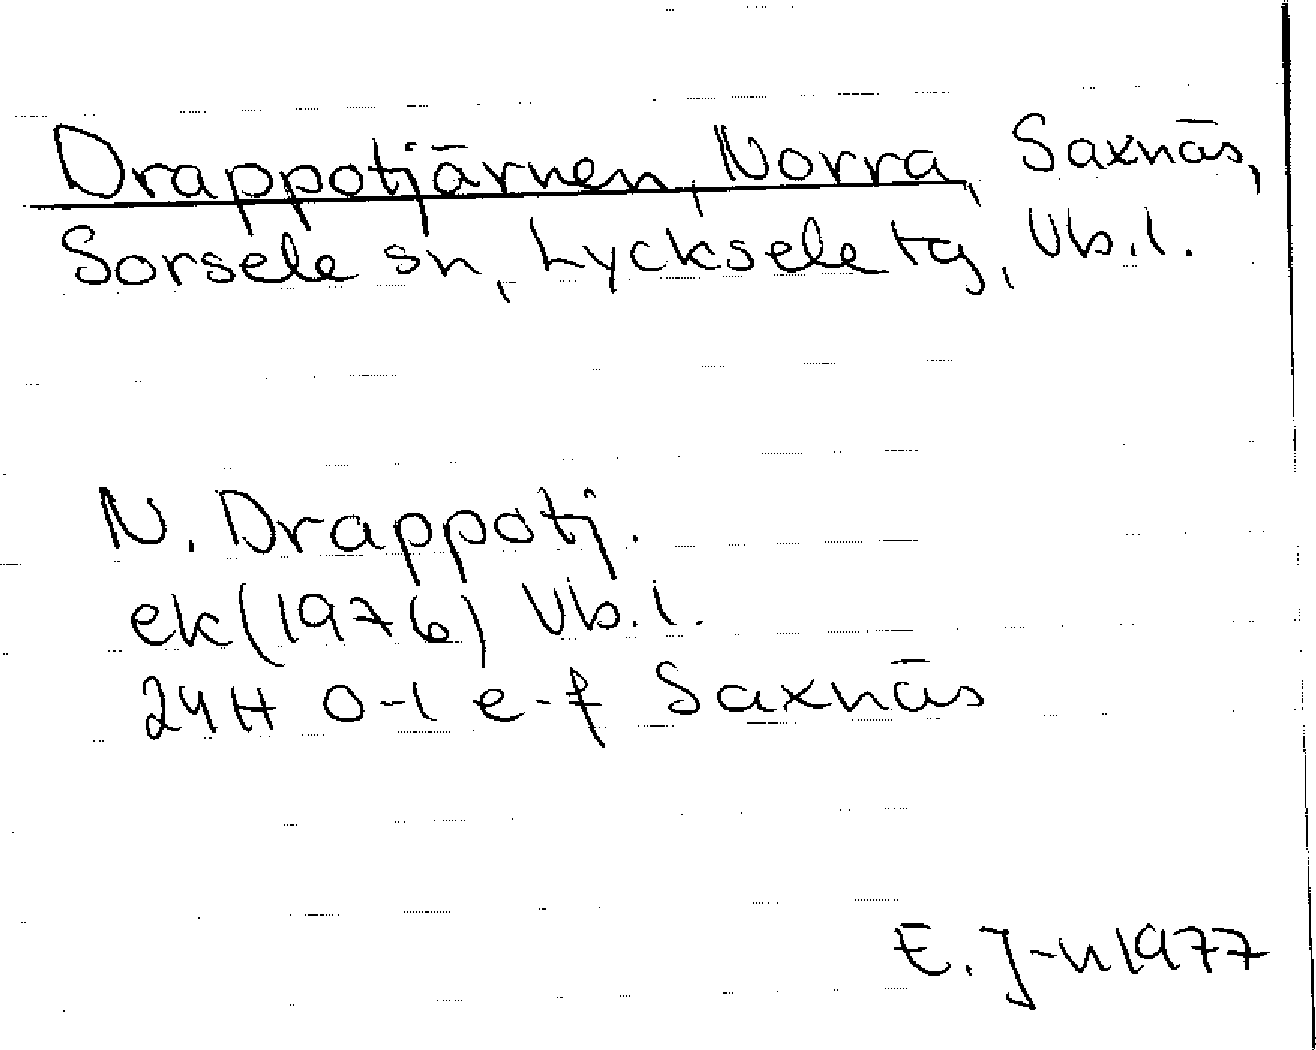 Drappotjärnen, Norra, Saxnäs,
Sorsele sn, Lycksele tg, Vb.l.
N. Drappotj.
ek(1976) Vb.l.
24H 0-1 e-f Saxnäs
E. J-n 1977